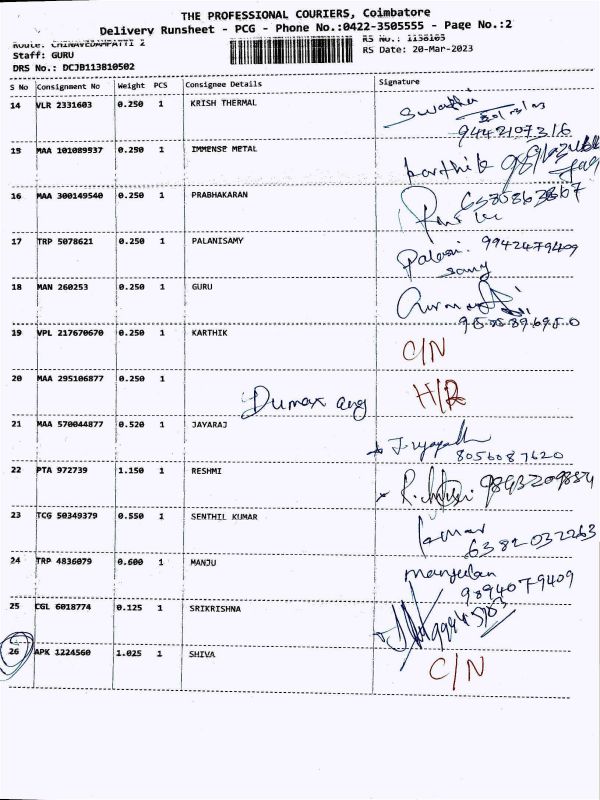 THE PROFESSIONAL COURIERS, Coimbatore
Delivery Runsheet - PCG - Phone No.:0422-3505555 - Page No.:2
Route: CHINAVEDAMPATTI 2
RS No.: 1138105
Staff: GURU
RS Date: 20-Mar-2023
DRS No.: DCJB113810502
S No Consignment No Weight PCS Consignee Details Signature
14 VLR 2331603 0.250 1 KRISH THERMAL Swathi
9442107316
15 MAA 101089937 0.250 1 IMMENSE METAL karthik
16 MAA 300149540 0.250 1 PRABHAKARAN
17 TRP 5078621 0.250 1 PALANISAMY Palani 9942479409
samy
18 MAN 260253 0.250 1 GURU
19 VPL 217670670 0.250 1 KARTHIK C/N
20 MAA 295106877 0.250 1 Dumex ang
21 MAA 570044877 0.520 1 JAYARAJ
8056087620
22 PTA 972739 1.150 1 RESHMI
23 TCG 50349379 0.550 1 SENTHIL KUMAR kumar
6382032263
24 TRP 4836079 0.600 1 MANJU
9894079409
25 CGL 6018774 0.125 1 SRIKRISHNA
26 APK 1224560 1.025 1 SHIVA C/N